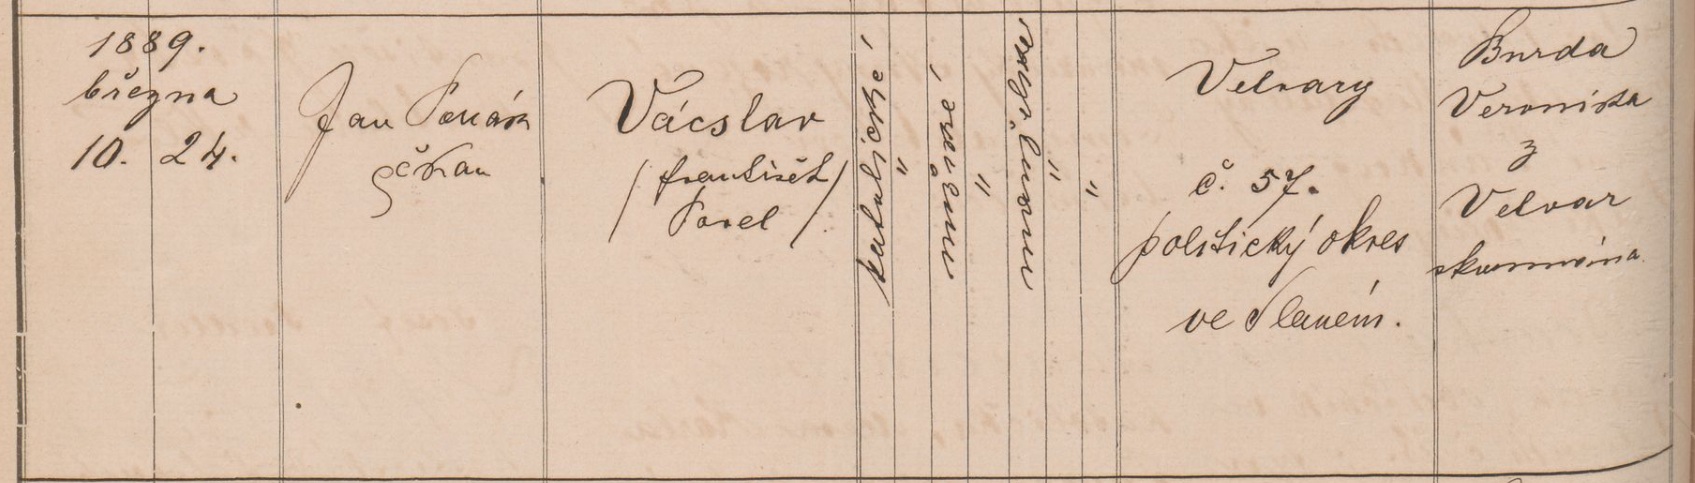 1889.
března
10. 24.
Jan Novák
děkan
Vácslav
/ František /
/ Pavel /
katolické
"
mužské
"
manželské
"
"
Velvary
č. 57.
politický okres
ve Slaném.
Burda
Veronika
z
Velvar
zkoumána